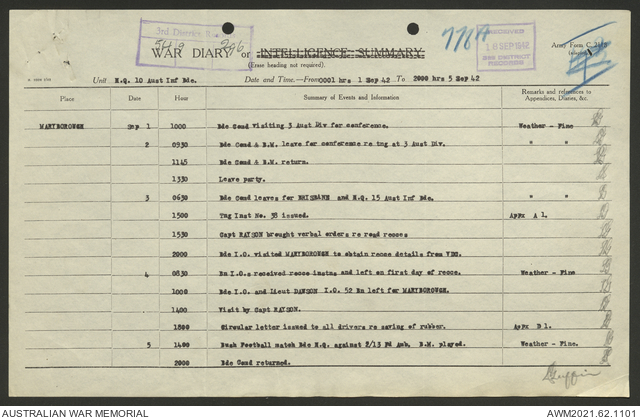 3rd District Records
5419 296
WAR DIARY or INTELLIGENCE SUMMARY
(Erase heading not required).
776A
RECEIVED
18 SEP 1942
3RD DISTRICT
RECORDS
Army Form C. 2118
Unit H.Q. 10 Aust Inf Bde. Date and Time.—From 0001 hrs 1 Sep 42 To 2000 hrs 5 Sep 42
Place Date Hour Summary of Events and Information Remarks and references to Appendices, Diaries, &c.
MARYBOROUGH Sep 1 1000 Bde Comd visiting 3 Aust Div for conference. Weather - Fine
2 0930 Bde Comd & B.M. leave for conference re tng at 3 Aust Div. " "
1145 Bde Comd & B.M. return.
1330 Leave party.
3 0630 Bde Comd leaves for BRISBANE and H.Q. 15 Aust Inf Bde. " "
1500 Tng Inst No. 38 issued. Appx A 1.
1530 Capt RAYSON brought verbal orders re road recces
2000 Bde I.O. visited MARYBOROUGH to obtain recce details from VDC.
4 0830 Bn I.O.s received recce instns and left on first day of recce. Weather - Fine
1000 Bde I.O. and Lieut DAWSON I.O. 52 Bn left for MARYBOROUGH.
1400 Visit by Capt RAYSON.
1800 Circular letter issued to all drivers re saving of rubber. Appx B 1.
5 1400 Bush Football match Bde H.Q. against 2/15 Fd Amb, B.M. played. Weather - Fine.
2000 Bde Comd returned.
AUSTRALIAN WAR MEMORIAL AWM2021.62.1101